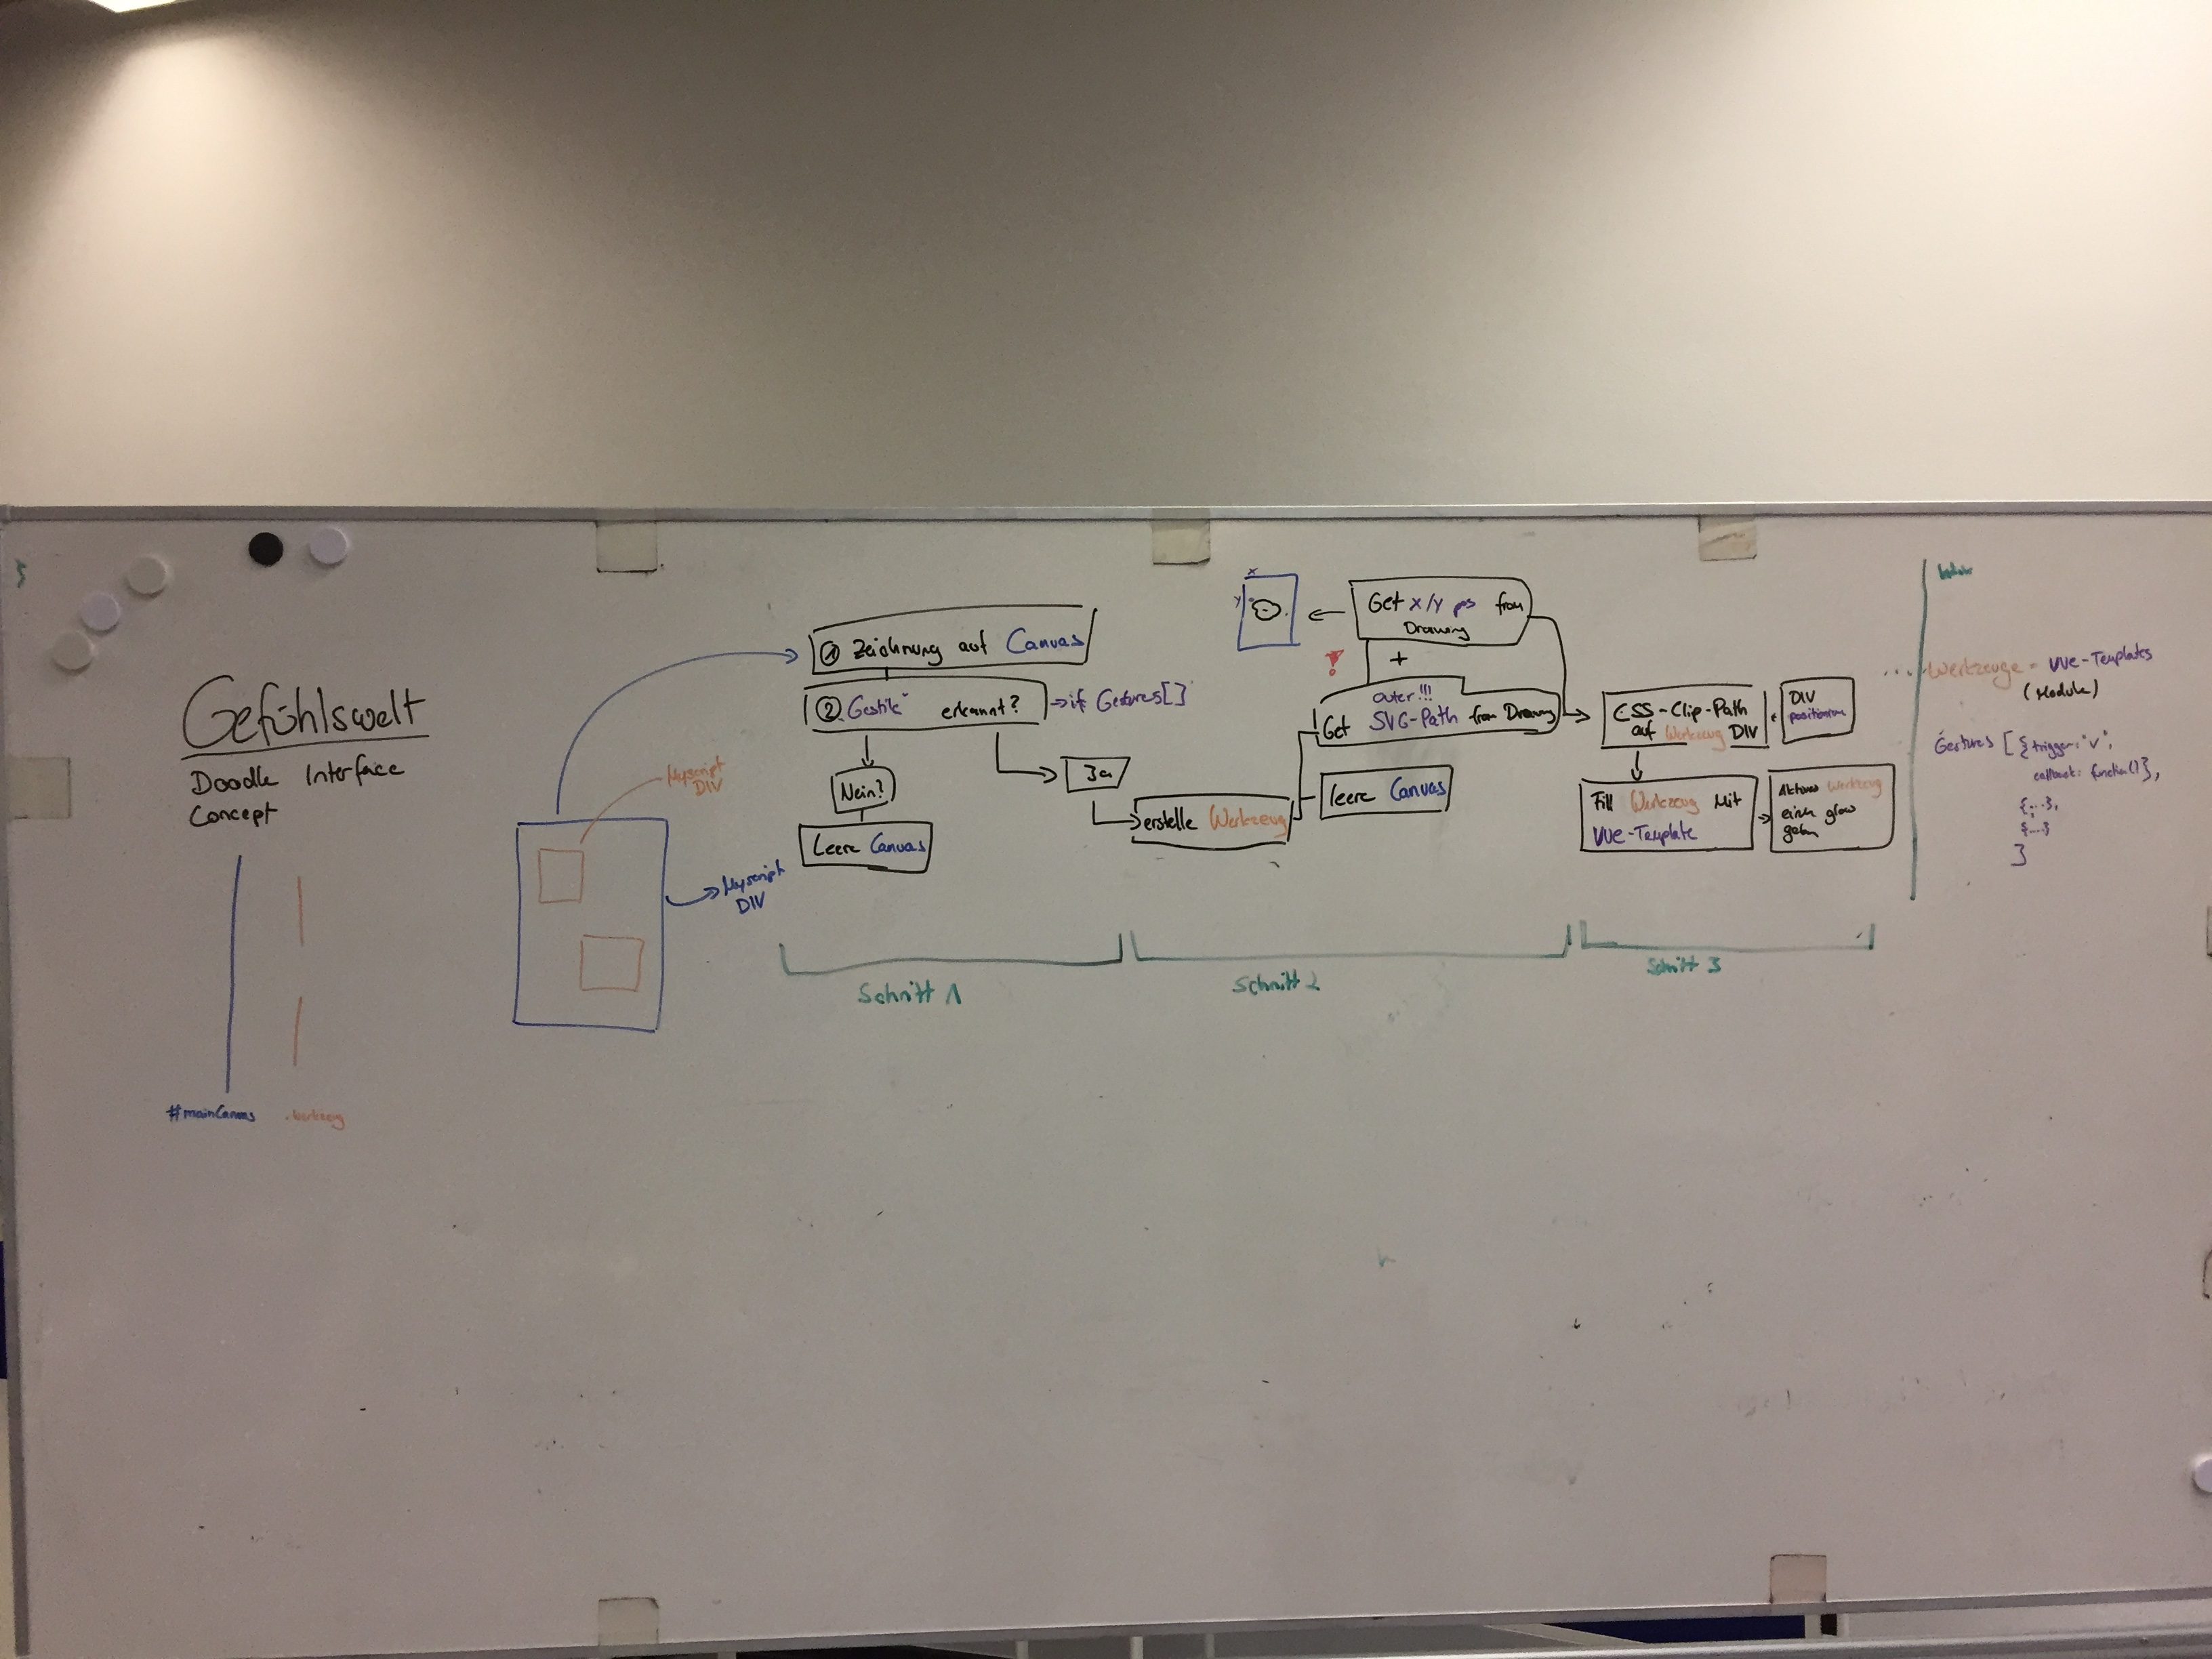 Gefühlswelt
Doodle Interface
Concept
#mainCanvas
.Werkzeug
Myscript
DIV
Myscript
DIV
① Zeichnung auf Canvas
② "Gestik" erkannt?
→ if Gestures[]
Nein?
Leere Canvas
Ja
erstelle Werkzeug
x
y
Get X/Y pos from
Drawing
!
+
outer!!!
Get SVG-Path from Drawing
leere Canvas
CSS-Clip-Path
auf Werkzeug DIV
DIV
positionieren
Fill Werkzeug Mit
VUE-Template
Aktives Werkzeug
einen glow
geben
Schritt 1
Schritt 2
Schritt 3
... Werkzeuge = VUE-Templates
(Module)
Gestures [ {trigger: "v",
callback: function()},
{...},
{...}
]